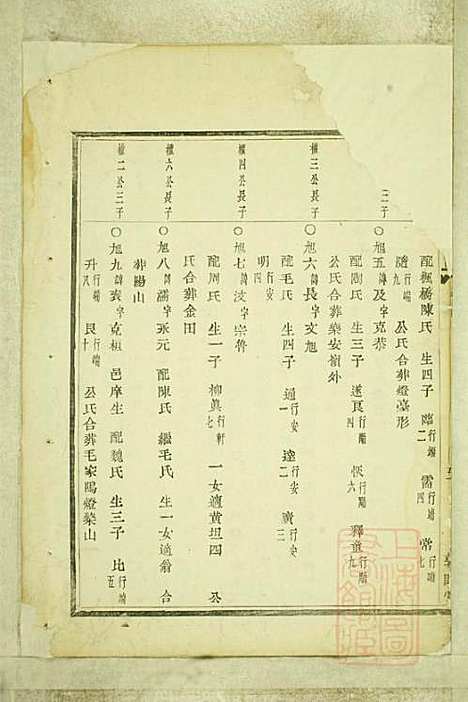 配楓橋陳氏 生四子 臨行端二 需行端四 常行端七
隨行端九 公氏合葬燈臺形
三子
〇旭五諱及字克恭
配周氏 生三子 遂良行端四 恢行端六 釋童行端九
公氏合葬藥安嶺外
權三公長子
〇旭六諱長字文旭
配毛氏 生四子 通行安一 達行安二 廣行安三
明行安四
權四公長子
〇旭七諱汶字宗魯
配周氏 生一子 柳眞行軒七 一女適黄坦四 公
氏合葬金田
權六公長子
〇旭八諱滿字永元 配陳氏 繼毛氏 生一女適翁 合
葬陽山
權二公三子
〇旭九諱衷字克桓 邑庠生 配魏氏 生三子 比行端五
升行端八 艮行端十 公氏合葬毛家陽燈藥山
上海圖書館藏